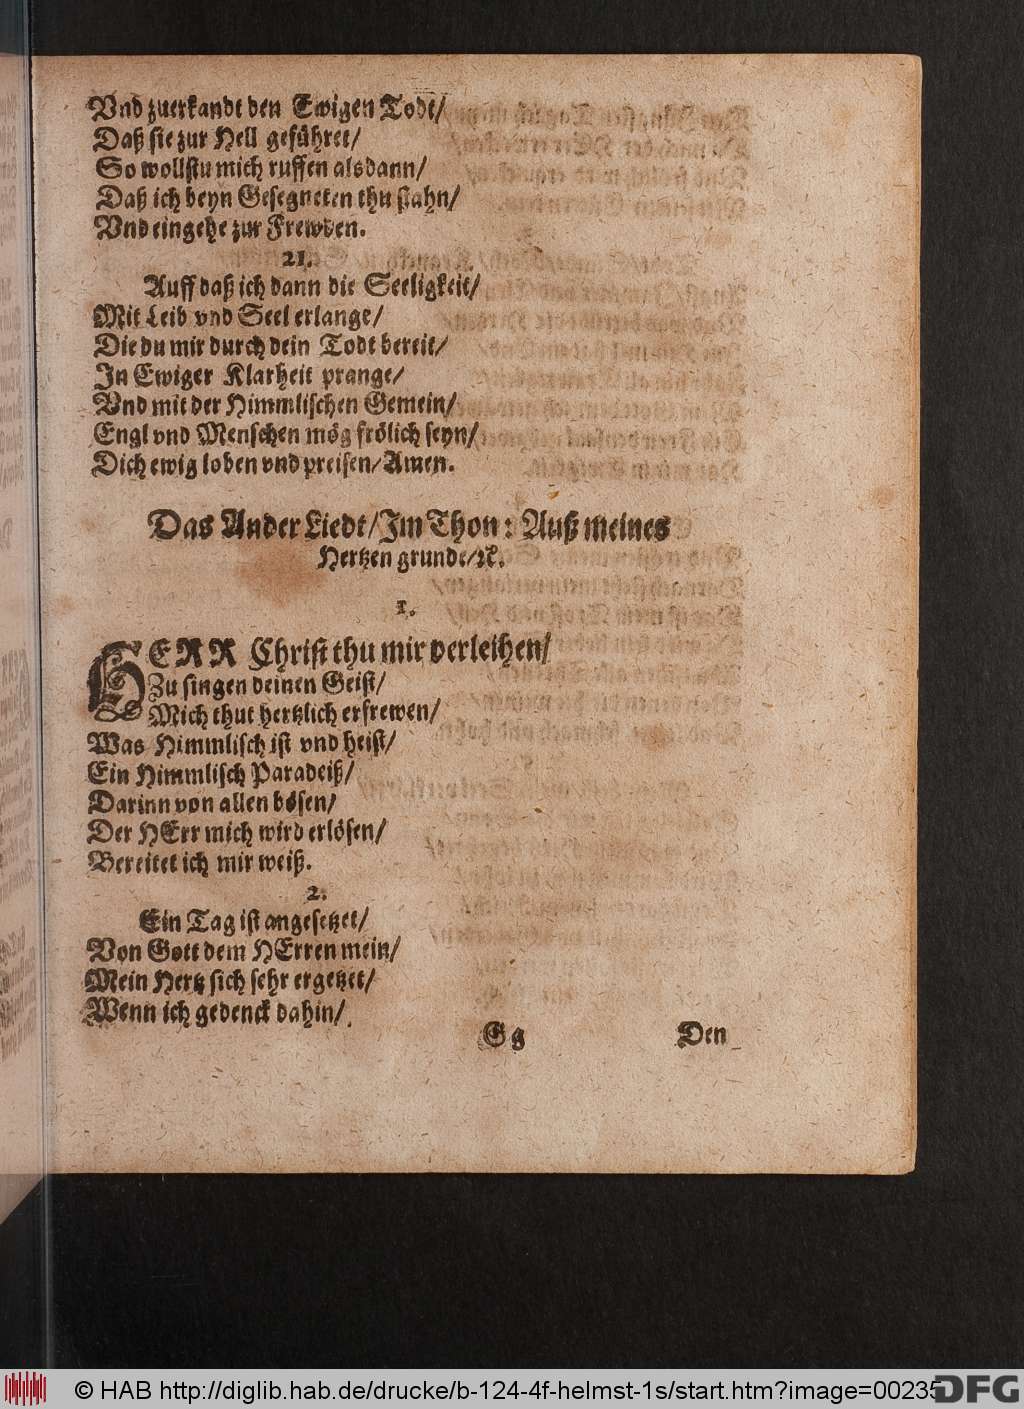 Vnd zuerkandt den Ewigen Todt/
Daß sie zur Hell geführet/
So wollstu mich ruffen alsdann/
Daß ich beyn Gesegneten thu stahn/
Vnd eingehe zur Frewden.
21.
Auff daß ich dann die Seeligkeit/
Mit Leib vnd Seel erlange/
Die du mir durch dein Todt bereit/
In Ewiger Klarheit prange/
Vnd mit der Himmlischen Gemein/
Engl vnd Menschen mög frölich seyn/
Dich ewig loben vnd preisen/Amen.
Das Ander Liedt/Im Thon: Auß meines
Hertzen grunde/ꝛc.
1.
HERR Christ thu mir verleihen/
Zu singen deinen Geist/
Mich thut hertzlich erfrewen/
Was Himmlisch ist vnd heist/
Ein Himmlisch Paradeiß/
Darinn von allen bösen/
Der HErr mich wird erlösen/
Bereitet ich mir weiß.
2.
Ein Tag ist angesetzet/
Von Gott dem HErren mein/
Mein Hertz sich sehr ergetzet/
Wenn ich gedenck dahin/
Gg Den
© HAB http://diglib.hab.de/drucke/b-124-4f-helmst-1s/start.htm?image=00235
DFG